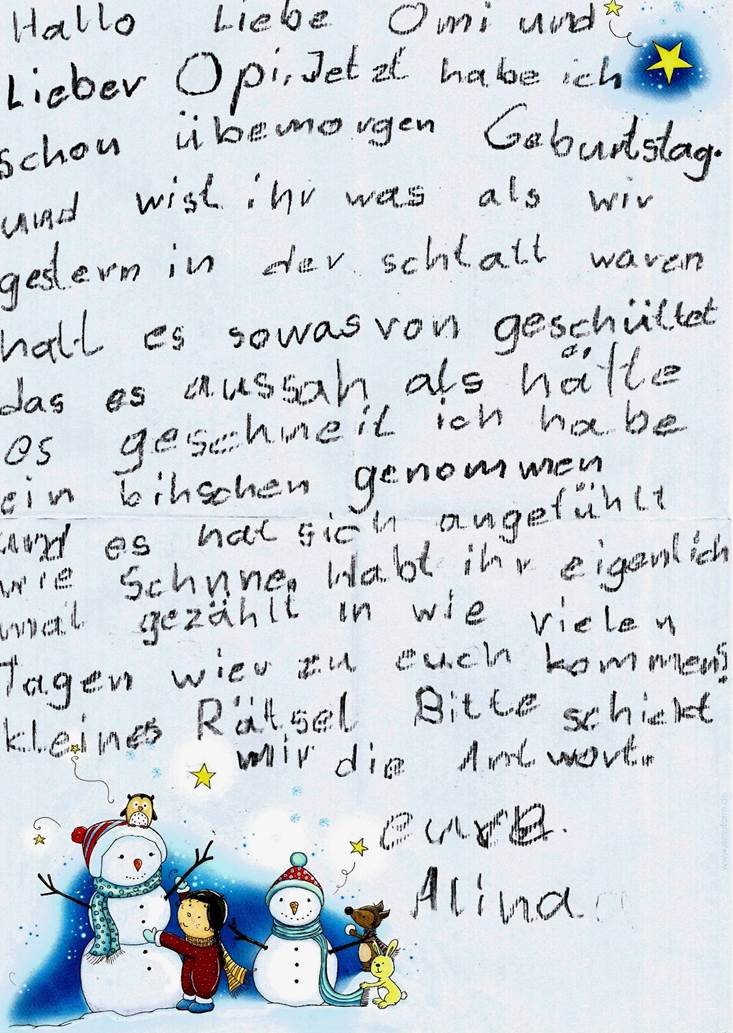 Hallo Liebe Omi und
Lieber Opi, Jetzt habe ich
schon übermorgen Geburtstag.
und wist ihr was als wir
gestern in der schtatt waren
hatt es sowas von geschüttet
das es aussah als hätte
es geschneit ich habe
ein bihschen genommen
und es hat sich angefühlt
wie Schnne. Habt ihr eigentlich
mal gezählt in wie vielen
Tagen wier zu euch kommen?
kleines Rätsel Bitte schickt
mir die Antwort.
eure.
Alina